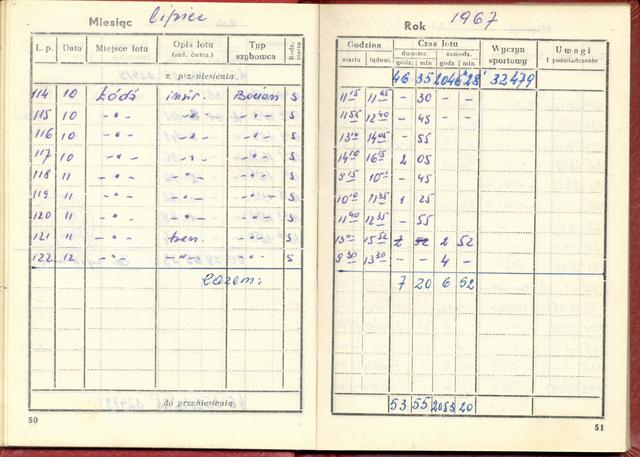 Miesiąc lipiec
L. p. Data Miejsce lotu Opis lotu (zad. ćwicz.) Typ szybowca Rodz. startu
z przeniesienia
114 10 Łódź instr. Bocian S
115 10 -"- -"- -"- S
116 10 -"- -"- -"- S
117 10 -"- -"- -"- S
118 11 -"- -"- -"- S
119 11 -"- -"- -"- S
120 11 -"- -"- -"- S
121 11 -"- tren. -"- S
122 12 -"- -"- -"- S
razem:
do przeniesienia
50
Rok 1967
Godzina Czas lotu Wyczyn sportowy Uwagi i poświadczenie
startu lądow. dwuster. samodz.
godz. min. godz. min.
46 35 2046 28 32479
11 15 11 45 - 30 - -
11 55 12 40 - 45 - -
13 10 14 05 - 55
14 10 16 15 2 05
9 15 - 45
10 10 11 35 1 25
11 40 12 35 - 55
15 52 2 52
9 30 13 30 - - 4 -
7 20 6 52
53 55 2053 20
51